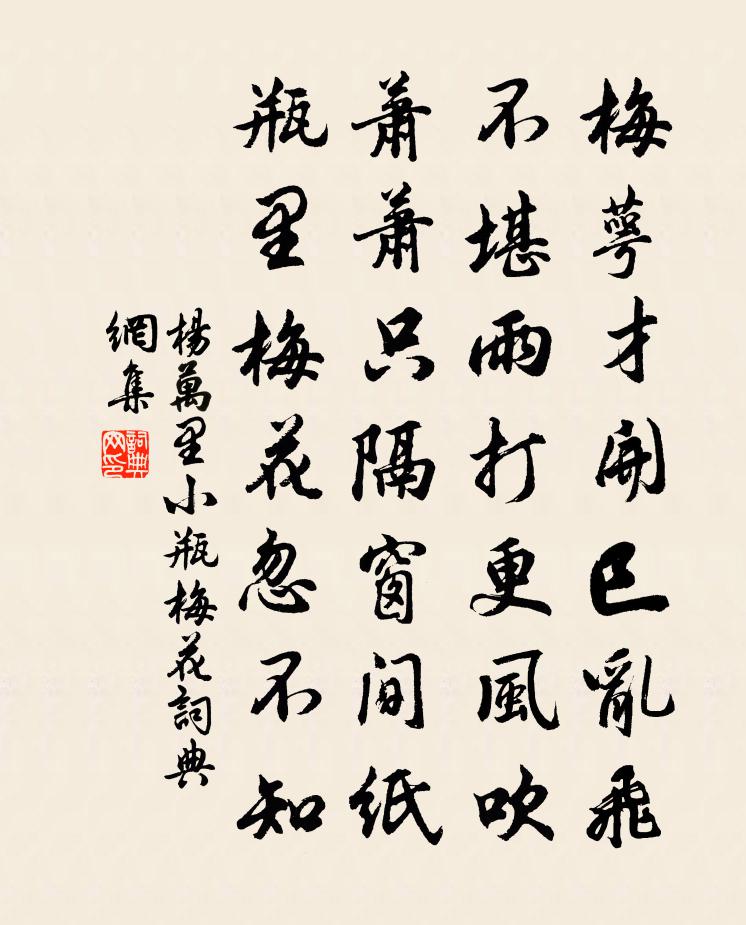 梅萼才開已亂飛
不堪雨打更風吹
蕭蕭只隔窗間紙
瓶里梅花忽不知
楊萬里小瓶梅花詞典
網集
詞典網印